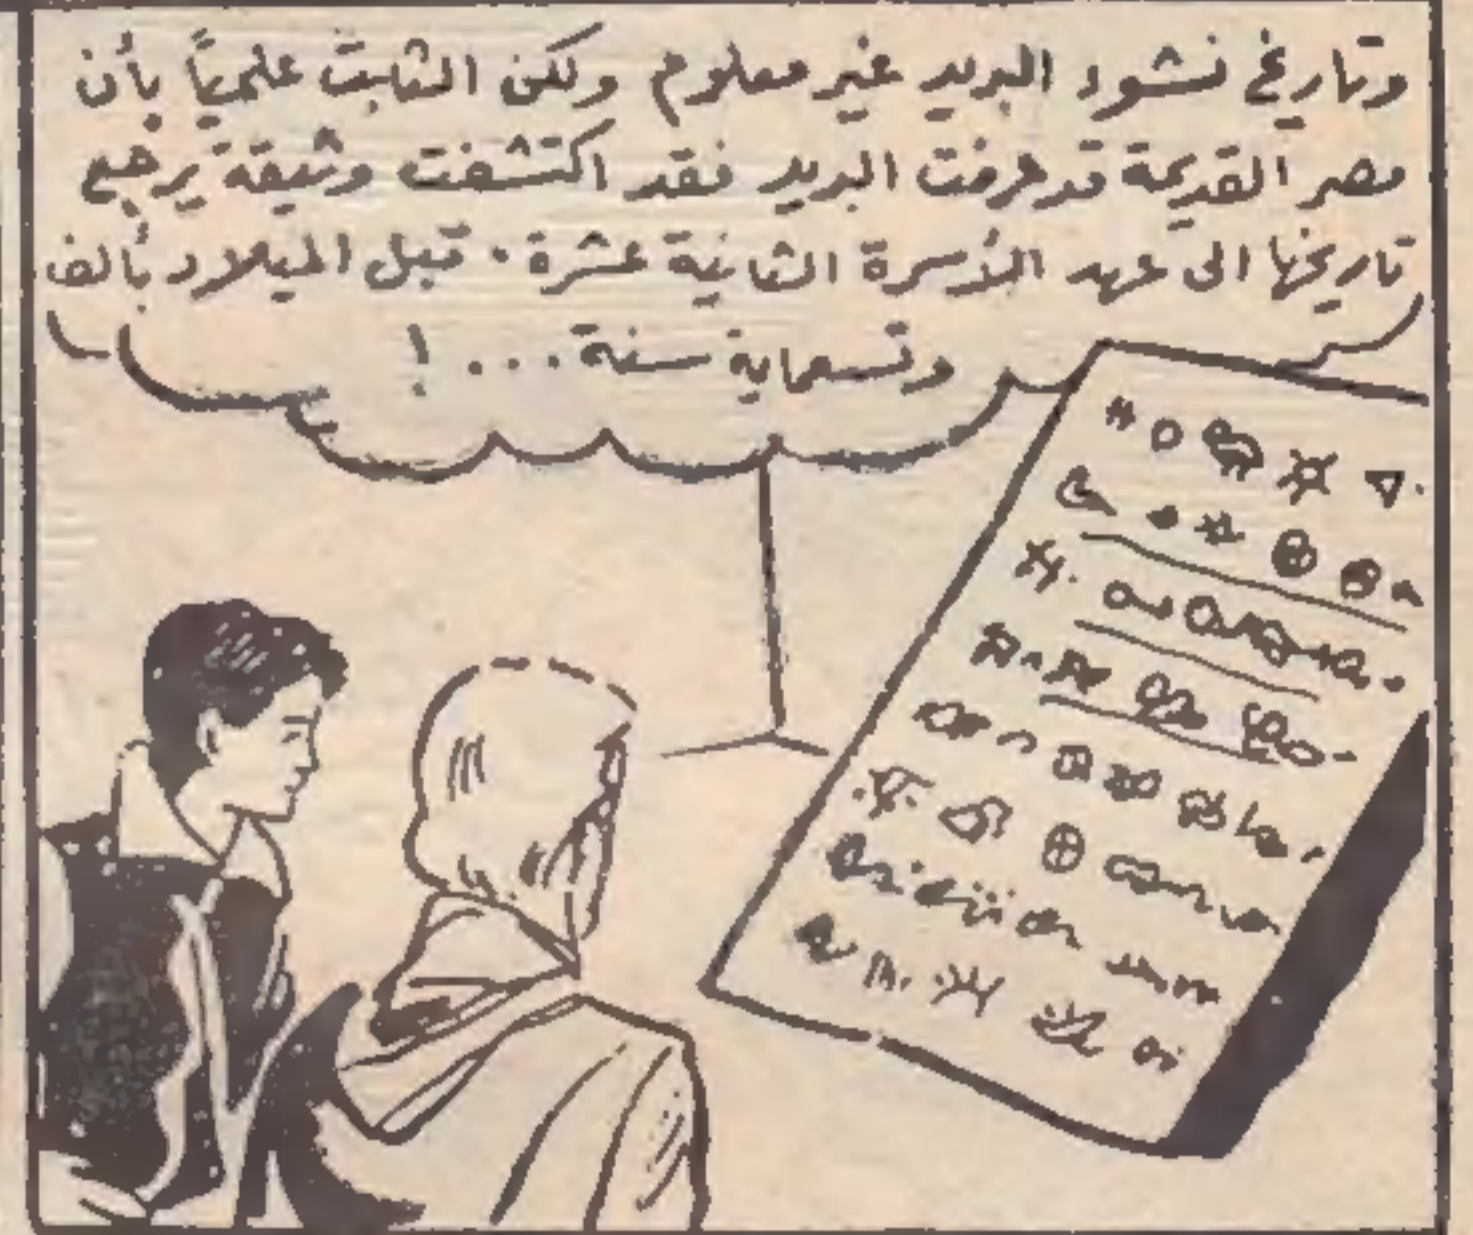 وتاريخ نشوء البريد غير معلوم ولكن الثابت علمياً بأن
مصر القديمة قد عرفت البريد فقد اكتشفت وثيقة يرجع
تاريخها الى عهد الأسرة الثانية عشرة . قبل الميلاد بألف
وتسعماية سنة . . . !